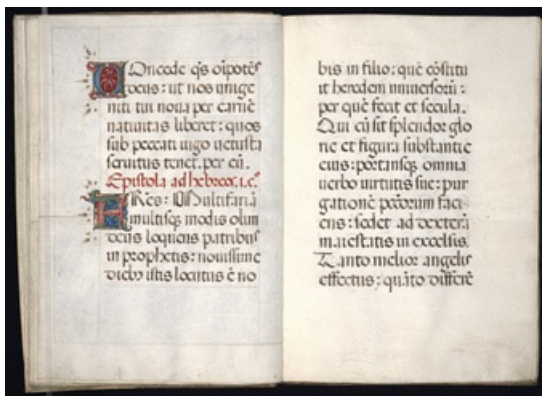 Oncede q̄s oīpotēs
deus: ut nos unige
niti tui noua per carnē
natiuitas liberet: quos
sub peccati iugo uetusta
seruitus tenet. per eū.
Epistola ad hebreos. i. c.
FRes: Multifariā
multisq; modis olim
deus loquens patribus
in prophetis: nouissime
diebꝫ istis locutus ē no
bis in filio: quē cōstitu
it heredem uniuersorū:
per quē fecit et secula.
Qui cū sit splendor glo
rie et figura substantie
eius: portansq; omnia
uerbo uirtutis sue: pur
gationē pctōrum faci
ens: sedet ad dexterā
maiestatis in excelsis.
Tanto melior angelis
effectus: quāto differē